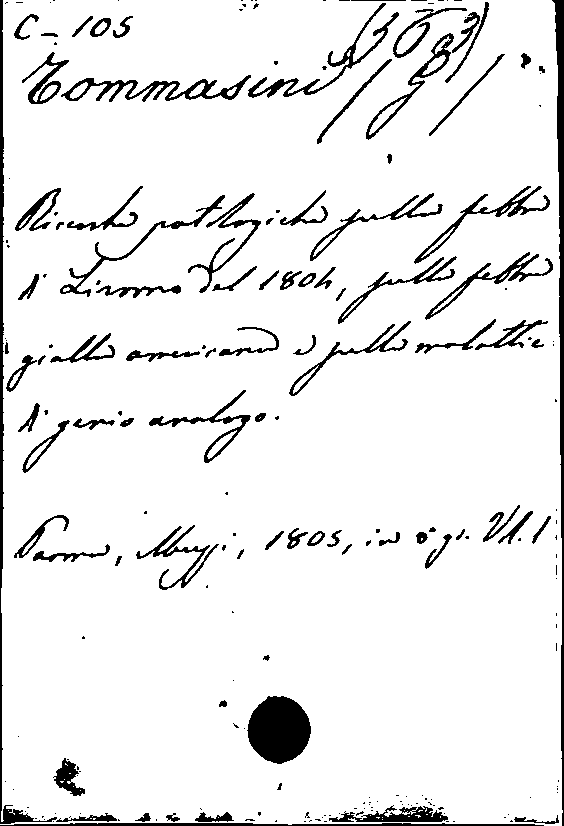 C-105
Tommasini
Ricerche patologiche sulla febbre
di Livorno del 1804, sulla febbre
gialla americana e sulle malattie
di genio analogo.
Parma, Mussi, 1805, in 8° gr. Vl. 1